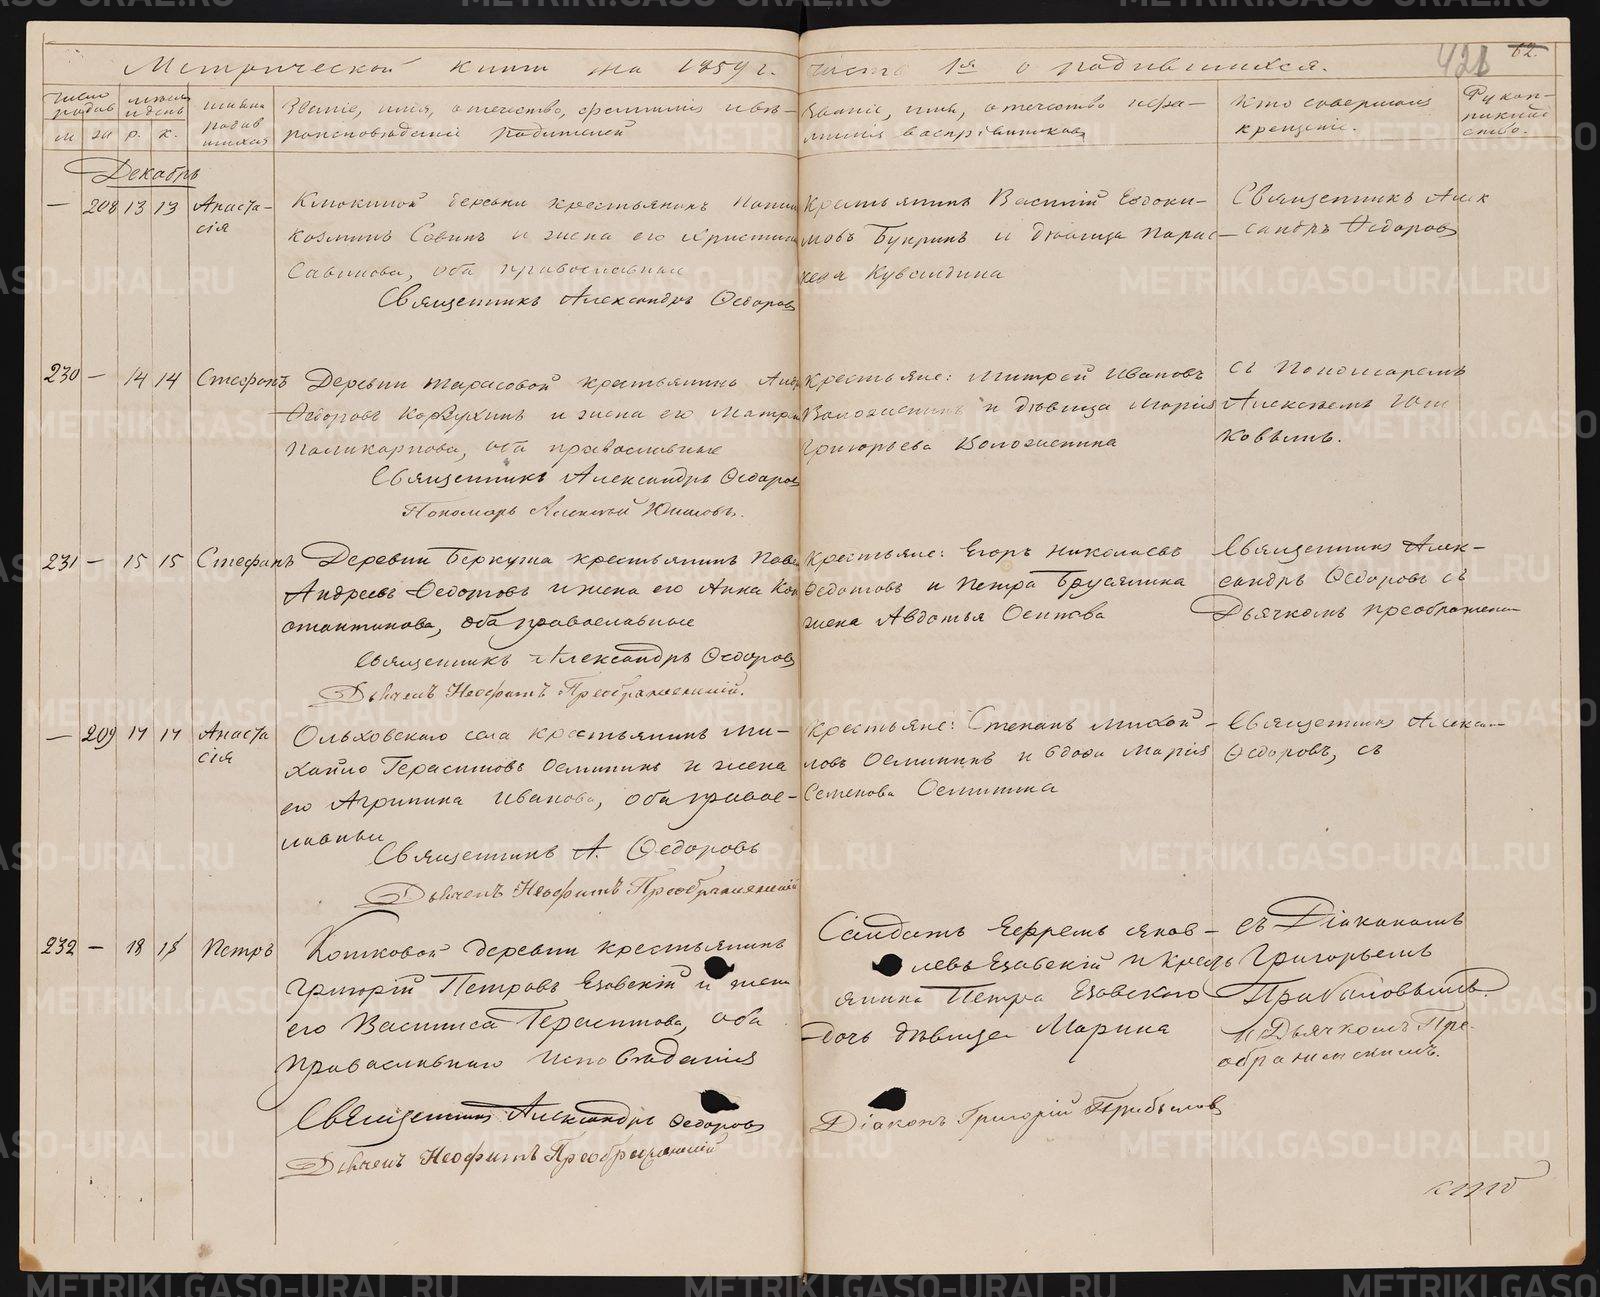 Метрической книги на 1859 г. часть 1я о родившихся.
62.
Число родив
м жен
месяц и день
р. к.
имена родив шихся
Званіе, имя, отечество, фамилія и вѣ-
роисповѣданіе родителей
Званіе, имя, отечество и фа-
милія воспріемниковъ
Кто совершалъ
крещеніе.
Рукоп-
рикладство.
Декабрь
— 208 13 13 Анаста-
сія
деревни крестьянинъ
Козминъ Савинъ и жена его Христина
Савинова, оба православные
Священникъ Александръ Ѳедоровъ
Крестьянинъ Василій Евдоки-
мовъ Букринъ и дѣвица Парас-
кева Кувалдина
Священникъ Алек
сандръ Ѳедоровъ
230 — 14 14 Стефанъ
Деревни Тарасовой крестьянинъ
Ѳедоровъ Корзухинъ и жена его Матрона
Поликарпова, оба православные
Священникъ Александръ Ѳедоровъ
Пономарь Алексѣй Юшковъ.
Крестьяне: Митрей Ивановъ
Воложенинъ и дѣвица Марія
Григорьева Воложенина
съ Пономаремъ
Алексѣемъ Юш
ковымъ.
231 — 15 15 Стефанъ
Деревни Беркута крестьянинъ Паве
Андреевъ Ѳедотовъ и жена его Анна Кон
стантинова, оба православные
Священникъ Александръ Ѳедоровъ
Дьячекъ Неофитъ Преображенскій.
Крестьяне: Егоръ Николаевъ
Ѳедотовъ и Петра Брусягина
жена Авдотья Осипова
Священникъ Алек-
сандръ Ѳедоровъ съ
Дьячкомъ Преображен
— 209 17 17 Анаста
сія
Ольховскаго села крестьянинъ Ми-
хайло Герасимовъ Осминин и жена
его Агрипина Иванова, оба правос-
лавные
Священникъ А. Ѳедоровъ
Дьячекъ Неофитъ Преображенскій
Крестьяне: Степанъ Михай-
ловъ Осмининъ и вдова Марія
Семенова Осминина
Священникъ Алекса
Ѳедоровъ, съ
232 — 18 18 Петръ
деревни крестьянинъ
Григорій Петровъ Езовскій и жена
его Василиса Герасимова, оба
православнаго исповѣданія
Священникъ Александръ Ѳедоровъ
Дьячекъ Неофитъ Преображенскій
Солдатъ Ефремъ Яков-
левъ Езовскій и крест
янина Петра Езовскаго
дочь дѣвица Марина
Діаконъ Григорій Прибыловъ
съ Діакономъ
Григорьемъ
Прибыловымъ
и Дьячкомъ Пре-
ображенскимъ.